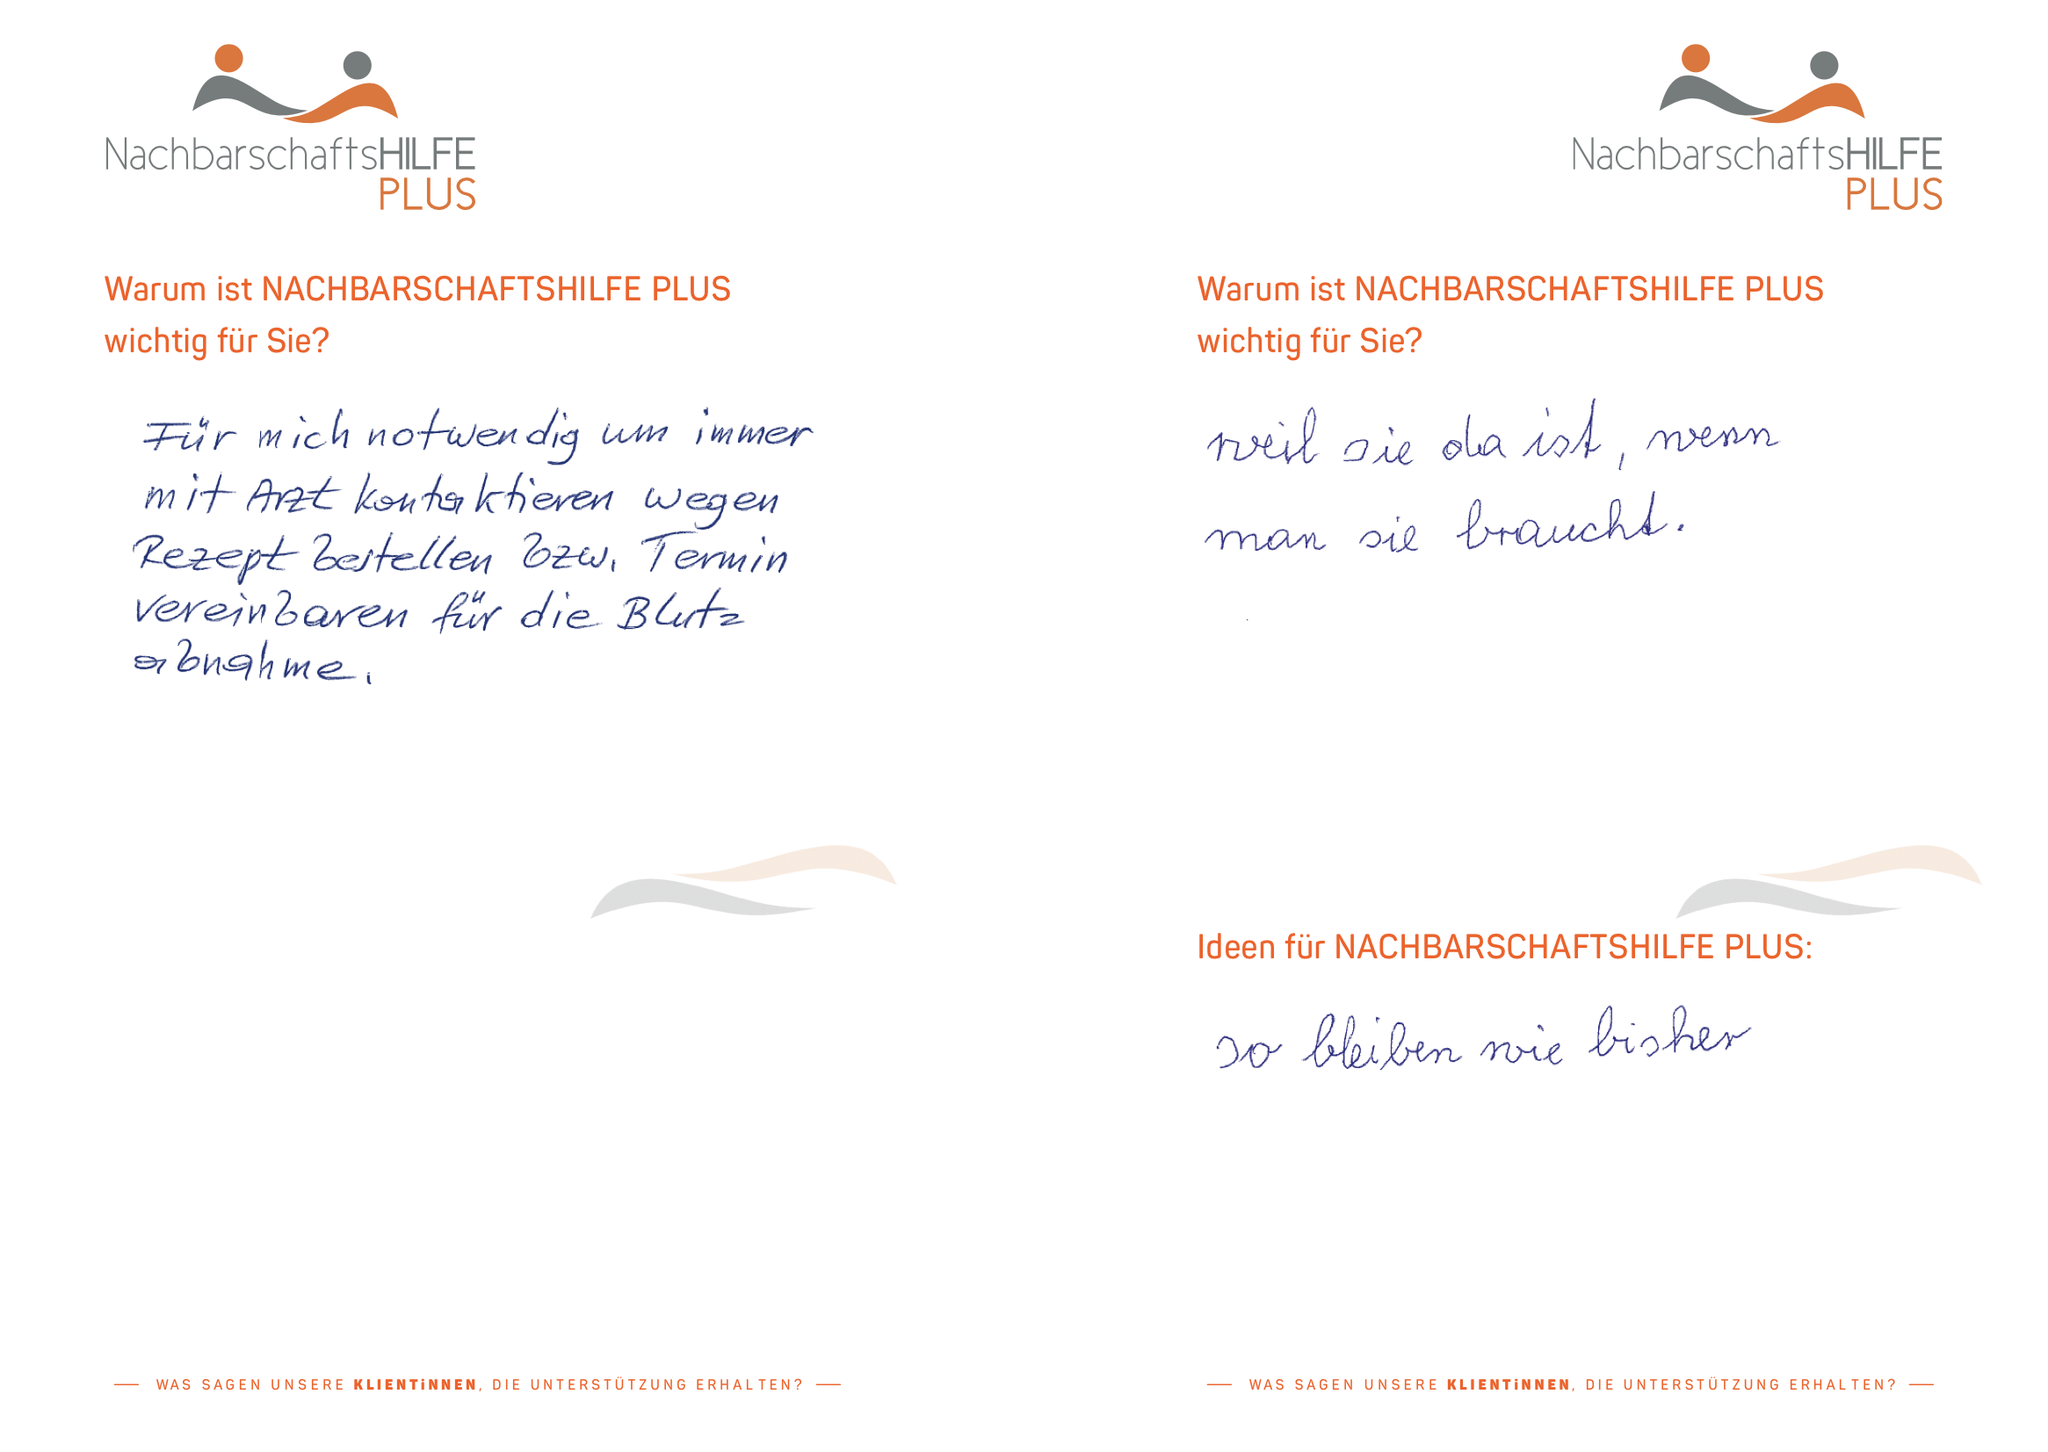 NachbarschaftsHILFE
PLUS
Warum ist NACHBARSCHAFTSHILFE PLUS
wichtig für Sie?
Für mich notwendig um immer
mit Arzt kontaktieren wegen
Rezept bestellen bzw. Termin
vereinbaren für die Blutz
abnahme.
— WAS SAGEN UNSERE KLIENTiNNEN, DIE UNTERSTÜTZUNG ERHALTEN? —
NachbarschaftsHILFE
PLUS
Warum ist NACHBARSCHAFTSHILFE PLUS
wichtig für Sie?
weil sie da ist, wenn
man sie braucht.
Ideen für NACHBARSCHAFTSHILFE PLUS:
so bleiben wie bisher
— WAS SAGEN UNSERE KLIENTiNNEN, DIE UNTERSTÜTZUNG ERHALTEN? —